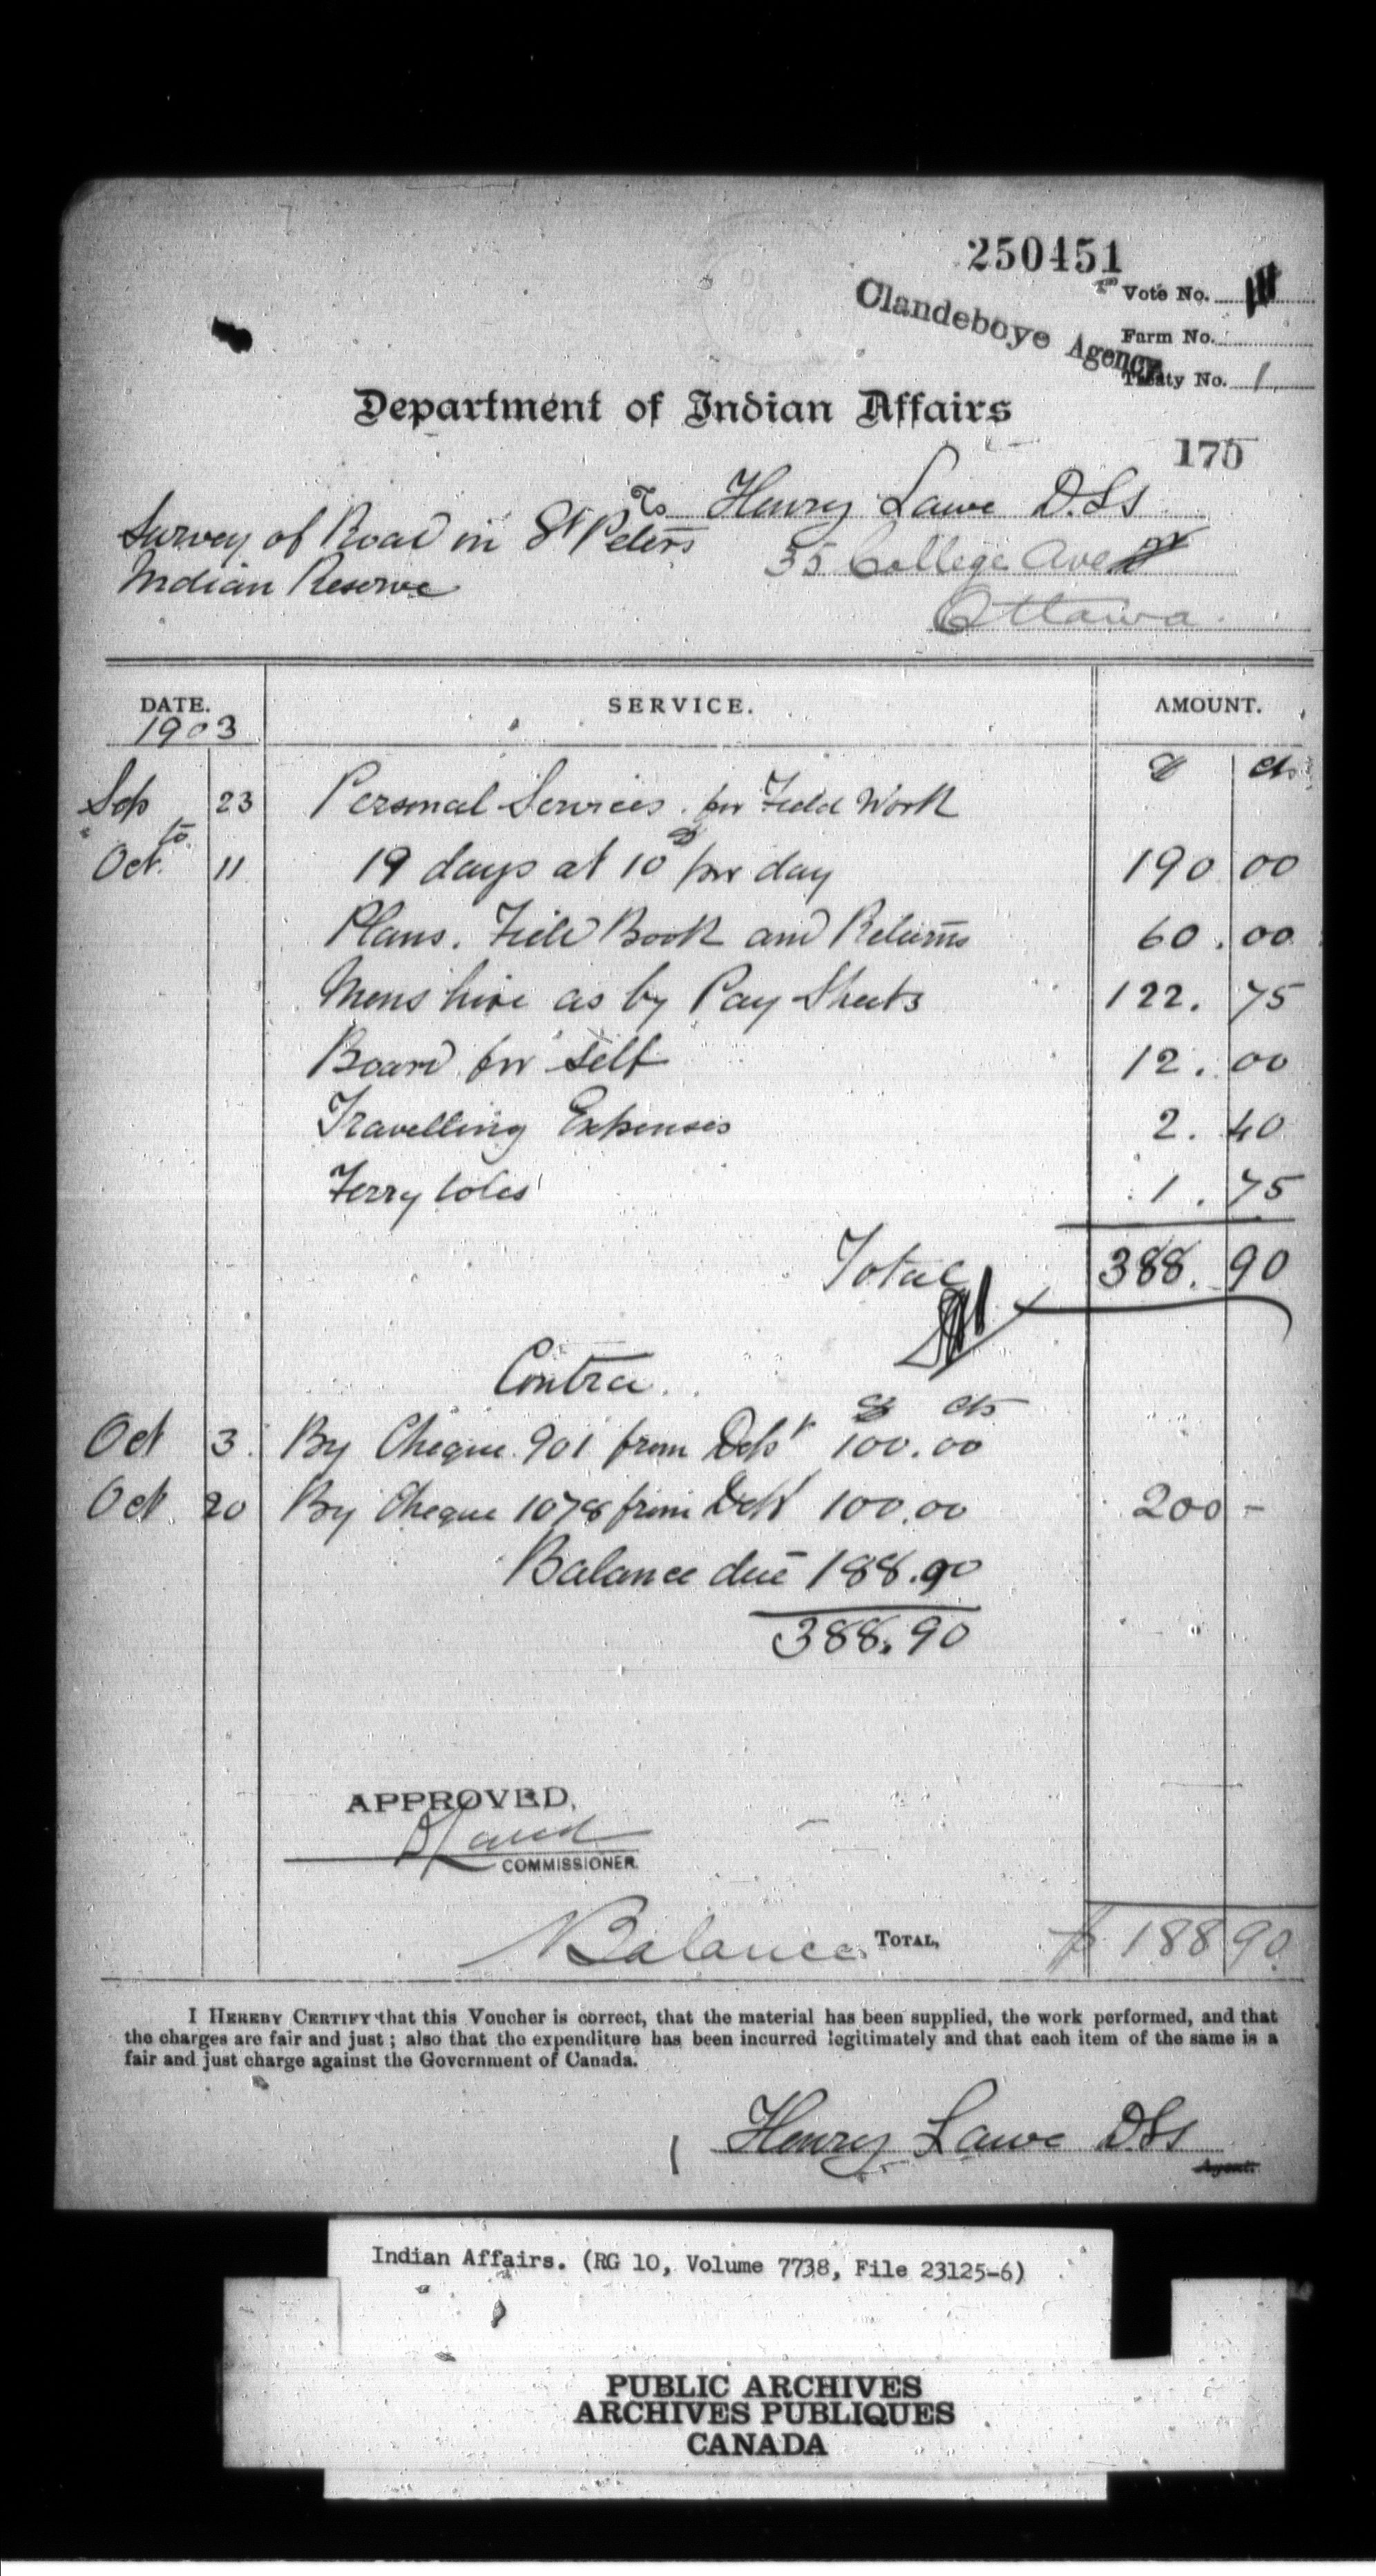 250451
Vote No.
Clandeboye Agency
Farm No.
Treaty No. 1
Department of Indian Affairs
170
To Henry Lawe D.L.S
Survey of Road in St Peters
35 College Ave
Indian Reserve
Ottawa.
DATE. SERVICE. AMOUNT.
1903
$ cts
Sep 23 Personal Services for Field Work
to
Oct. 11 19 days at 10$ per day 190 00
Plans. Field Book and Returns 60.00
Mens hire as by Pay Sheets 122.75
Board for self 12.00
Travelling Expenses 2.40
Ferry toles 1.75
Total 388.90
Contra.
$ cts
Oct 3. By Cheque 901 from Dept 100.00
Oct. 20 By Cheque 1078 from Dept 100.00 200 -
Balance due 188.90
388.90
APPROVED,
COMMISSIONER.
Balance TOTAL, $ 188 90
I HEREBY CERTIFY that this Voucher is correct, that the material has been supplied, the work performed, and that
the charges are fair and just; also that the expenditure has been incurred legitimately and that each item of the same is a
fair and just charge against the Government of Canada.
Henry Lawe DLS
Agent.
Indian Affairs. (RG 10, Volume 7738, File 23125-6)
PUBLIC ARCHIVES
ARCHIVES PUBLIQUES
CANADA